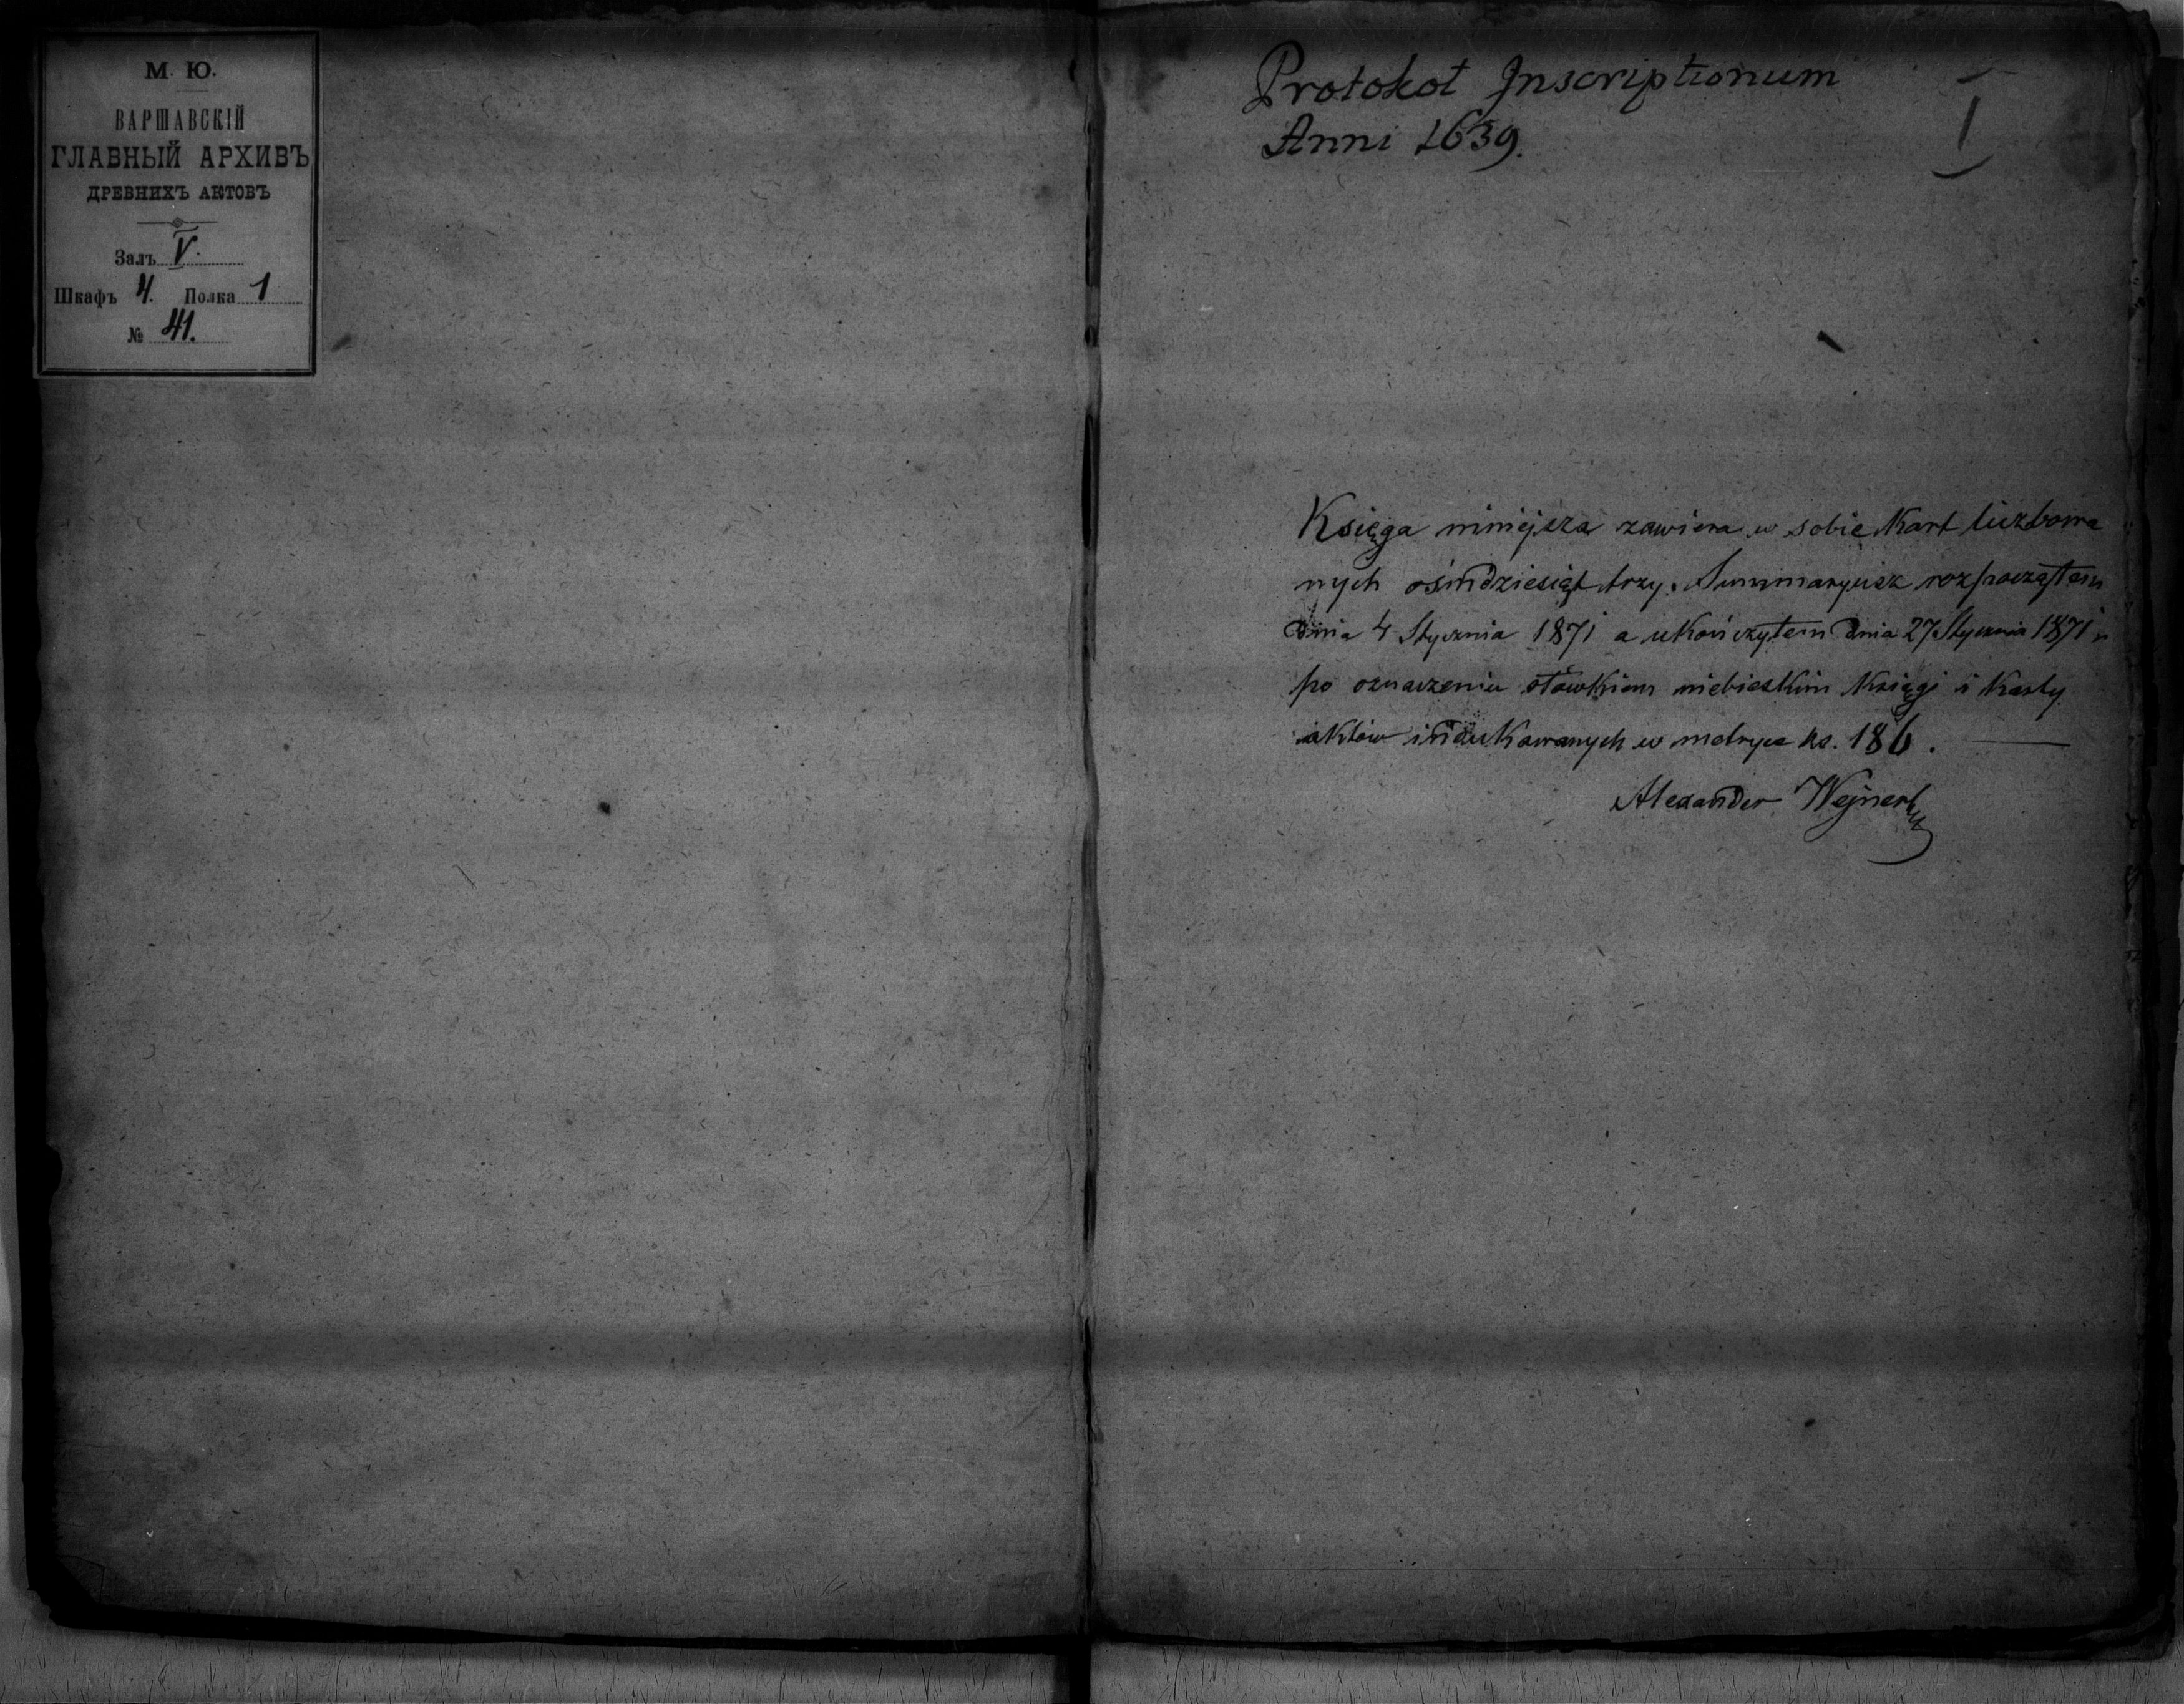 М. Ю.
ВАРШАВСКІЙ
ГЛАВНЫЙ АРХИВЪ
ДРЕВНИХЪ АКТОВЪ
Залъ V.
Шкафъ 4. Полка 1
№ 41.
Protokoł Inscriptionum
Anni 1639.
I
Księga niniejsza zawiera w sobie Kart liczbowa
nych ośmdziesiąt trzy. Summaryusz rozpocząłem
dnia 4 Stycznia 1871 a ukończyłem dnia 27 Stycznia 1871 r.
po oznaczeniu ołówkiem niebieskim Księgi i Karty
aktów indukowanych w metryce ks. 186.
Alexander Wejnert